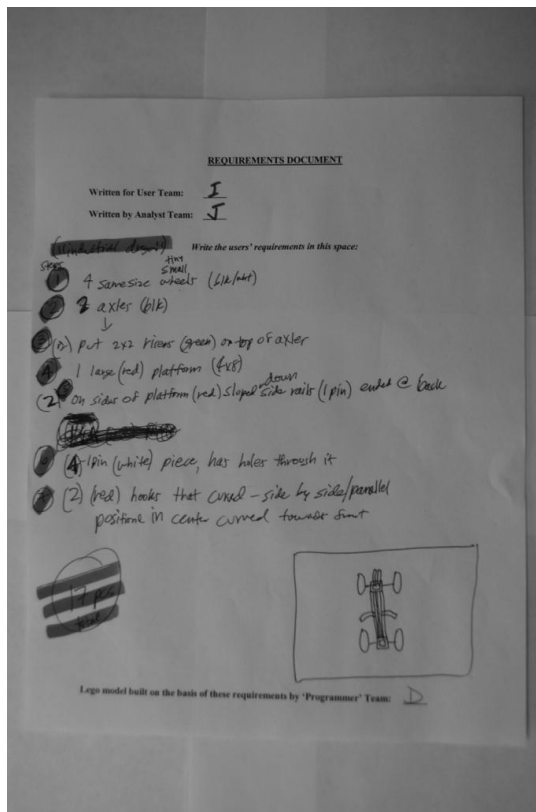 REQUIREMENTS DOCUMENT
Written for User Team: I
Written by Analyst Team: J
Write the users' requirements in this space:
steps
tiny
small
1 4 same size wheels (blk/wht)
2 2 axles (blk)
3 (2) put 2x2 risers (green) on top of axles
4 1 large (red) platform (4x8)
down
(2) on sides of platform (red) sloped side rails (1 pin) ended @ back
4 1pin (white) piece, has holes through it
(2) (red) hooks that curved - side by side/parallel
position in center curved towards front
17 pcs
total
Lego model built on the basis of these requirements by 'Programmer' Team: D